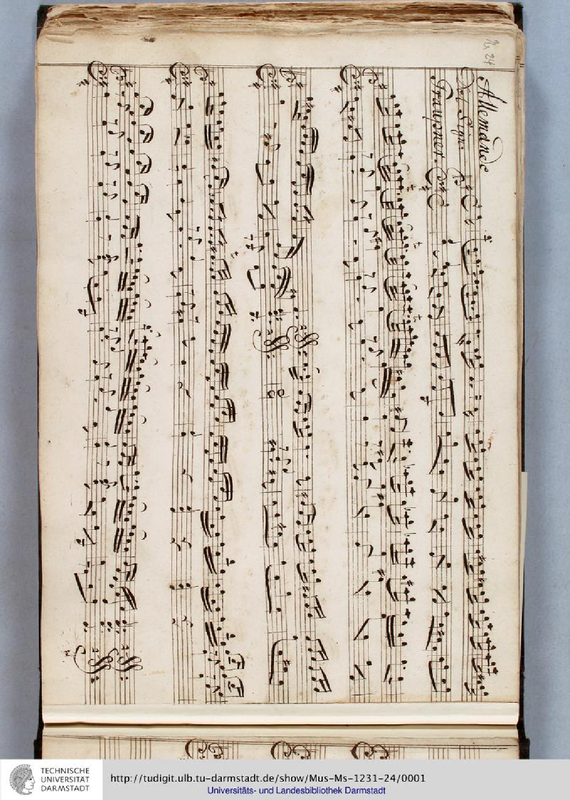 No 24
Allemande
del Sign.
Graupner
TECHNISCHE
UNIVERSITÄT
DARMSTADT
http://tudigit.ulb.tu-darmstadt.de/show/Mus-Ms-1231-24/0001
Universitäts- und Landesbibliothek Darmstadt